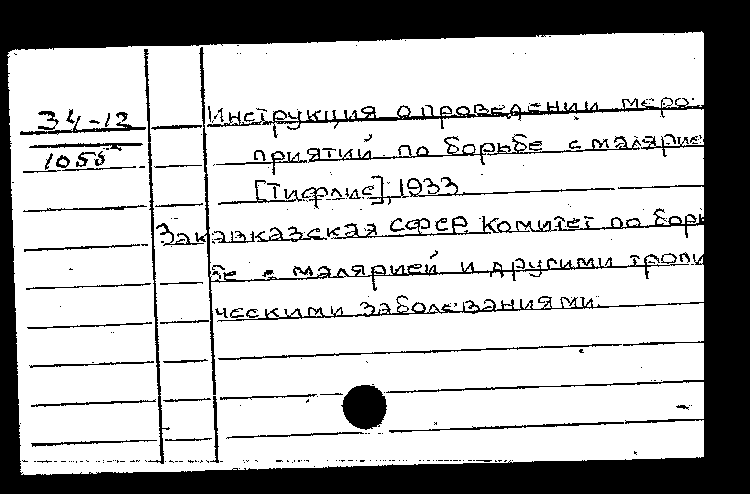 34-12
1055
Инструкция о проведении меро-
приятий по борьбе с малярие
[Тифлис], 1933.
Закавказская СФСР Комитет по борь
бе с малярией и другими тропи
ческими заболеваниями.